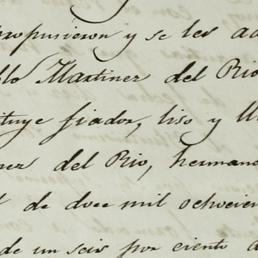 propusieron y se les ad
blo Martinez del Rio
tituye fiador, liso y ll
nez del Rio, hermano
de doce mil ochocien
de un seis por ciento a